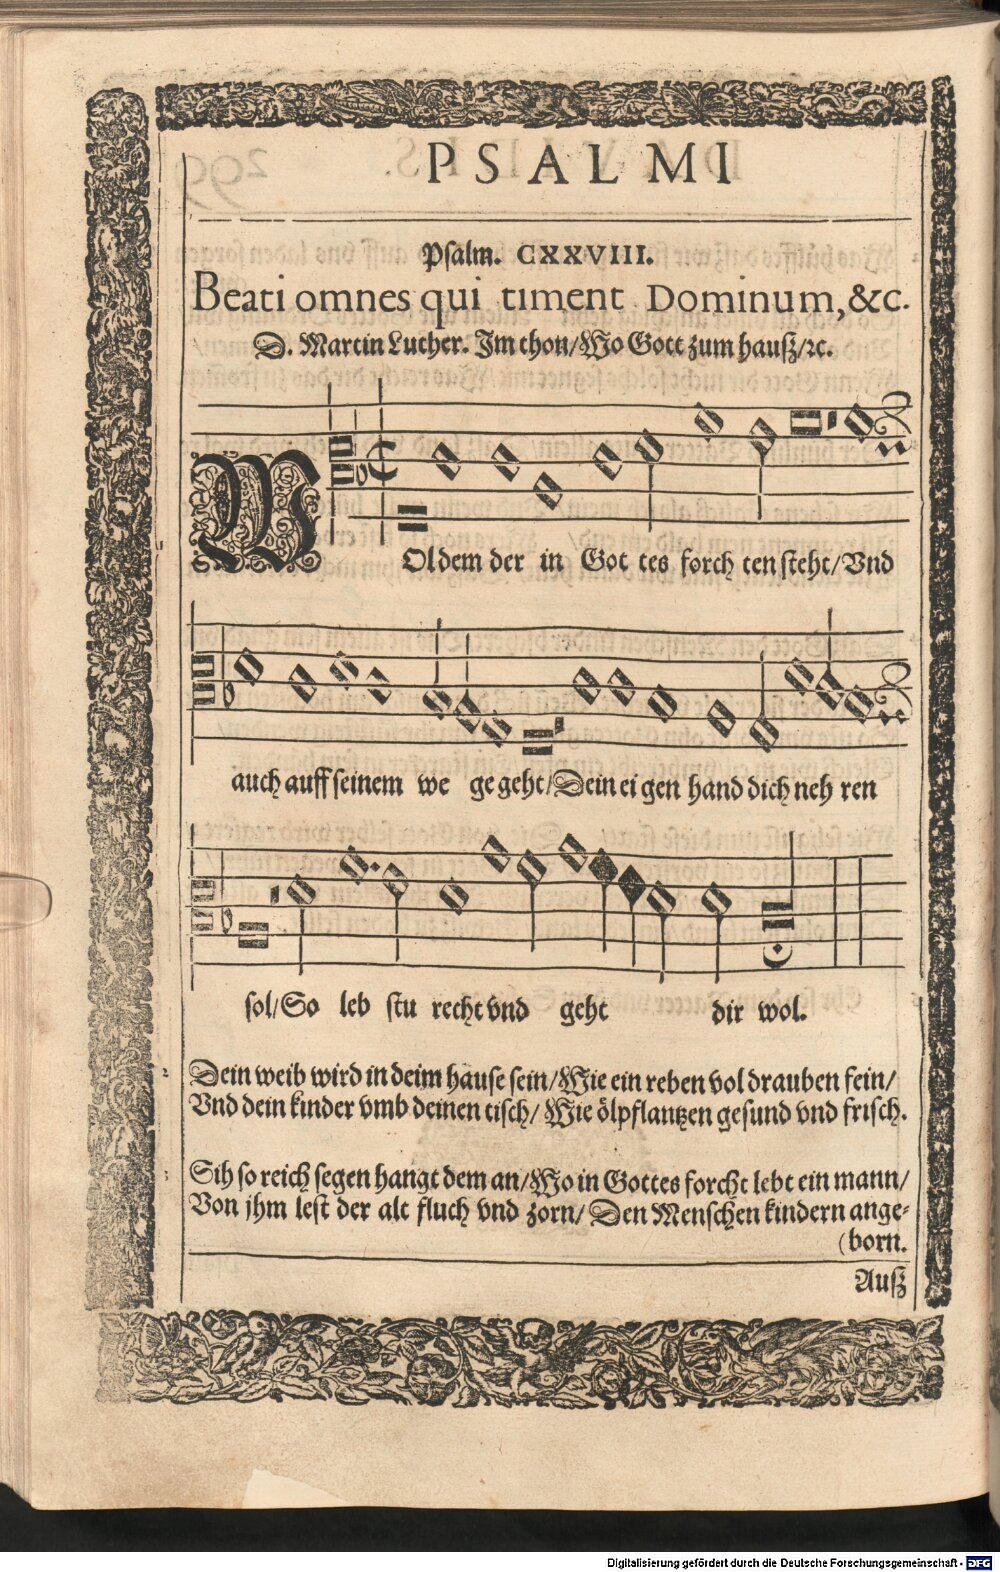 PSALMI
Psalm. CXXVIII.
Beati omnes qui timent Dominum, &c.
D. Martin Luther. Im thon/ Wo Gott zum hauß/ ꝛc.
WOl dem der in Got tes forch ten steht/ Vnd
auch auff seinem we ge geht/ Dein ei gen hand dich neh ren
sol/ So leb stu recht vnd geht dir wol.
Dein weib wird in deim hause sein/ Wie ein reben vol drauben fein/
Vnd dein kinder vmb deinen tisch/ Wie ölpflantzen gesund vnd frisch.
Sih so reich segen hangt dem an/ Wo in Gottes forcht lebt ein mann/
Von jhm lest der alt fluch vnd zorn/ Den Menschen kindern ange⸗
(born.
Auß
Digitalisierung gefördert durch die Deutsche Forschungsgemeinschaft - DFG